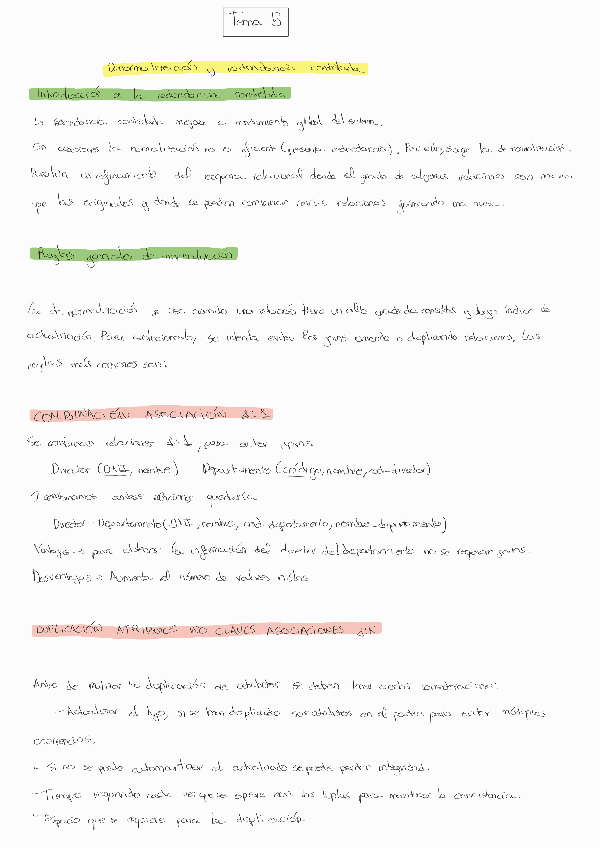 Tema 5
Desnormalización y redundancia controlada
Introducción a la redundancia controlada
La redundancia controlada mejora el rendimiento global del sistema.
En ocasiones la normalización no es eficiente ( redundancia). Por ello, surge la desnormalización.
Realiza un refinamiento del esquema relacional donde el grado de algunas relaciones son menor
que las originales y donde se pueden combinar varias relaciones generando una nueva.
Reglas generales de
La desnormalización se usa cuando una relación tiene un alto grado de consultas y bajo índice de
actualización. Para seleccionarlo, se intenta evitar los joins o duplicando relaciones. Las
reglas más comunes son:
COMBINACIÓN: ASOCIACIÓN 1:1
Se combinan relaciones 1:1, para evitar joins.
Director (DNI, nombre) Departamento (código, nombre, cod-director)
Si combinamos ambas relaciones quedaría
Director-Departamento (DNI, nombre, cod. departamento, nombre-departamento)
Ventajas → para obtener la información del director del departamento no se requieren joins.
Desventajas → Aumenta el número de valores nulos
DUPLICACIÓN ATRIBUTOS NO CLAVES ASOCIACIONES 1:N
Antes de realizar la duplicación de atributos se deben tener ciertas consideraciones:
- Actualizar el hijo, si se han duplicado sus atributos en el padre, para evitar múltiples
ocurrencias.
- Si no se puede automatizar el actualizado se puede perder integridad.
- Tiempo requerido cada vez que se opera con las tuplas para mantener la consistencia.
- Espacio que se requiere para la duplicación.